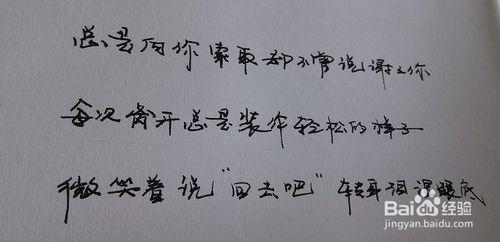 总是向你索取却不曾说谢谢你
每次离开总是装作轻松的样子
微笑着说“回去吧”转身泪湿眼底
Bai度经验
jingyan.baidu.com